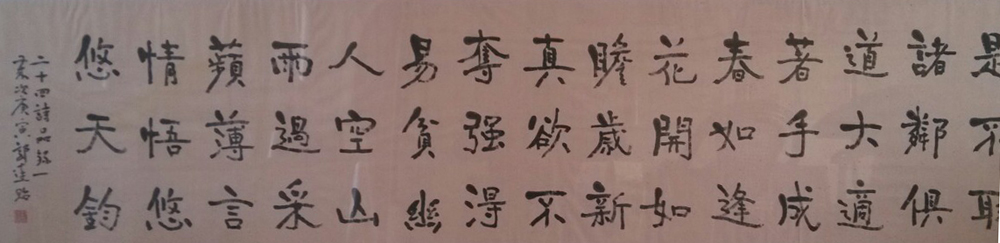 是不取
諸鄰俱
道大適
著手成
春如逢
花開如
瞻歲新
真欲不
奪强得
易貧幽
人空山
雨過采
蘋薄言
情悟悠
悠天鈞
二十四詩品
歲次庚寅